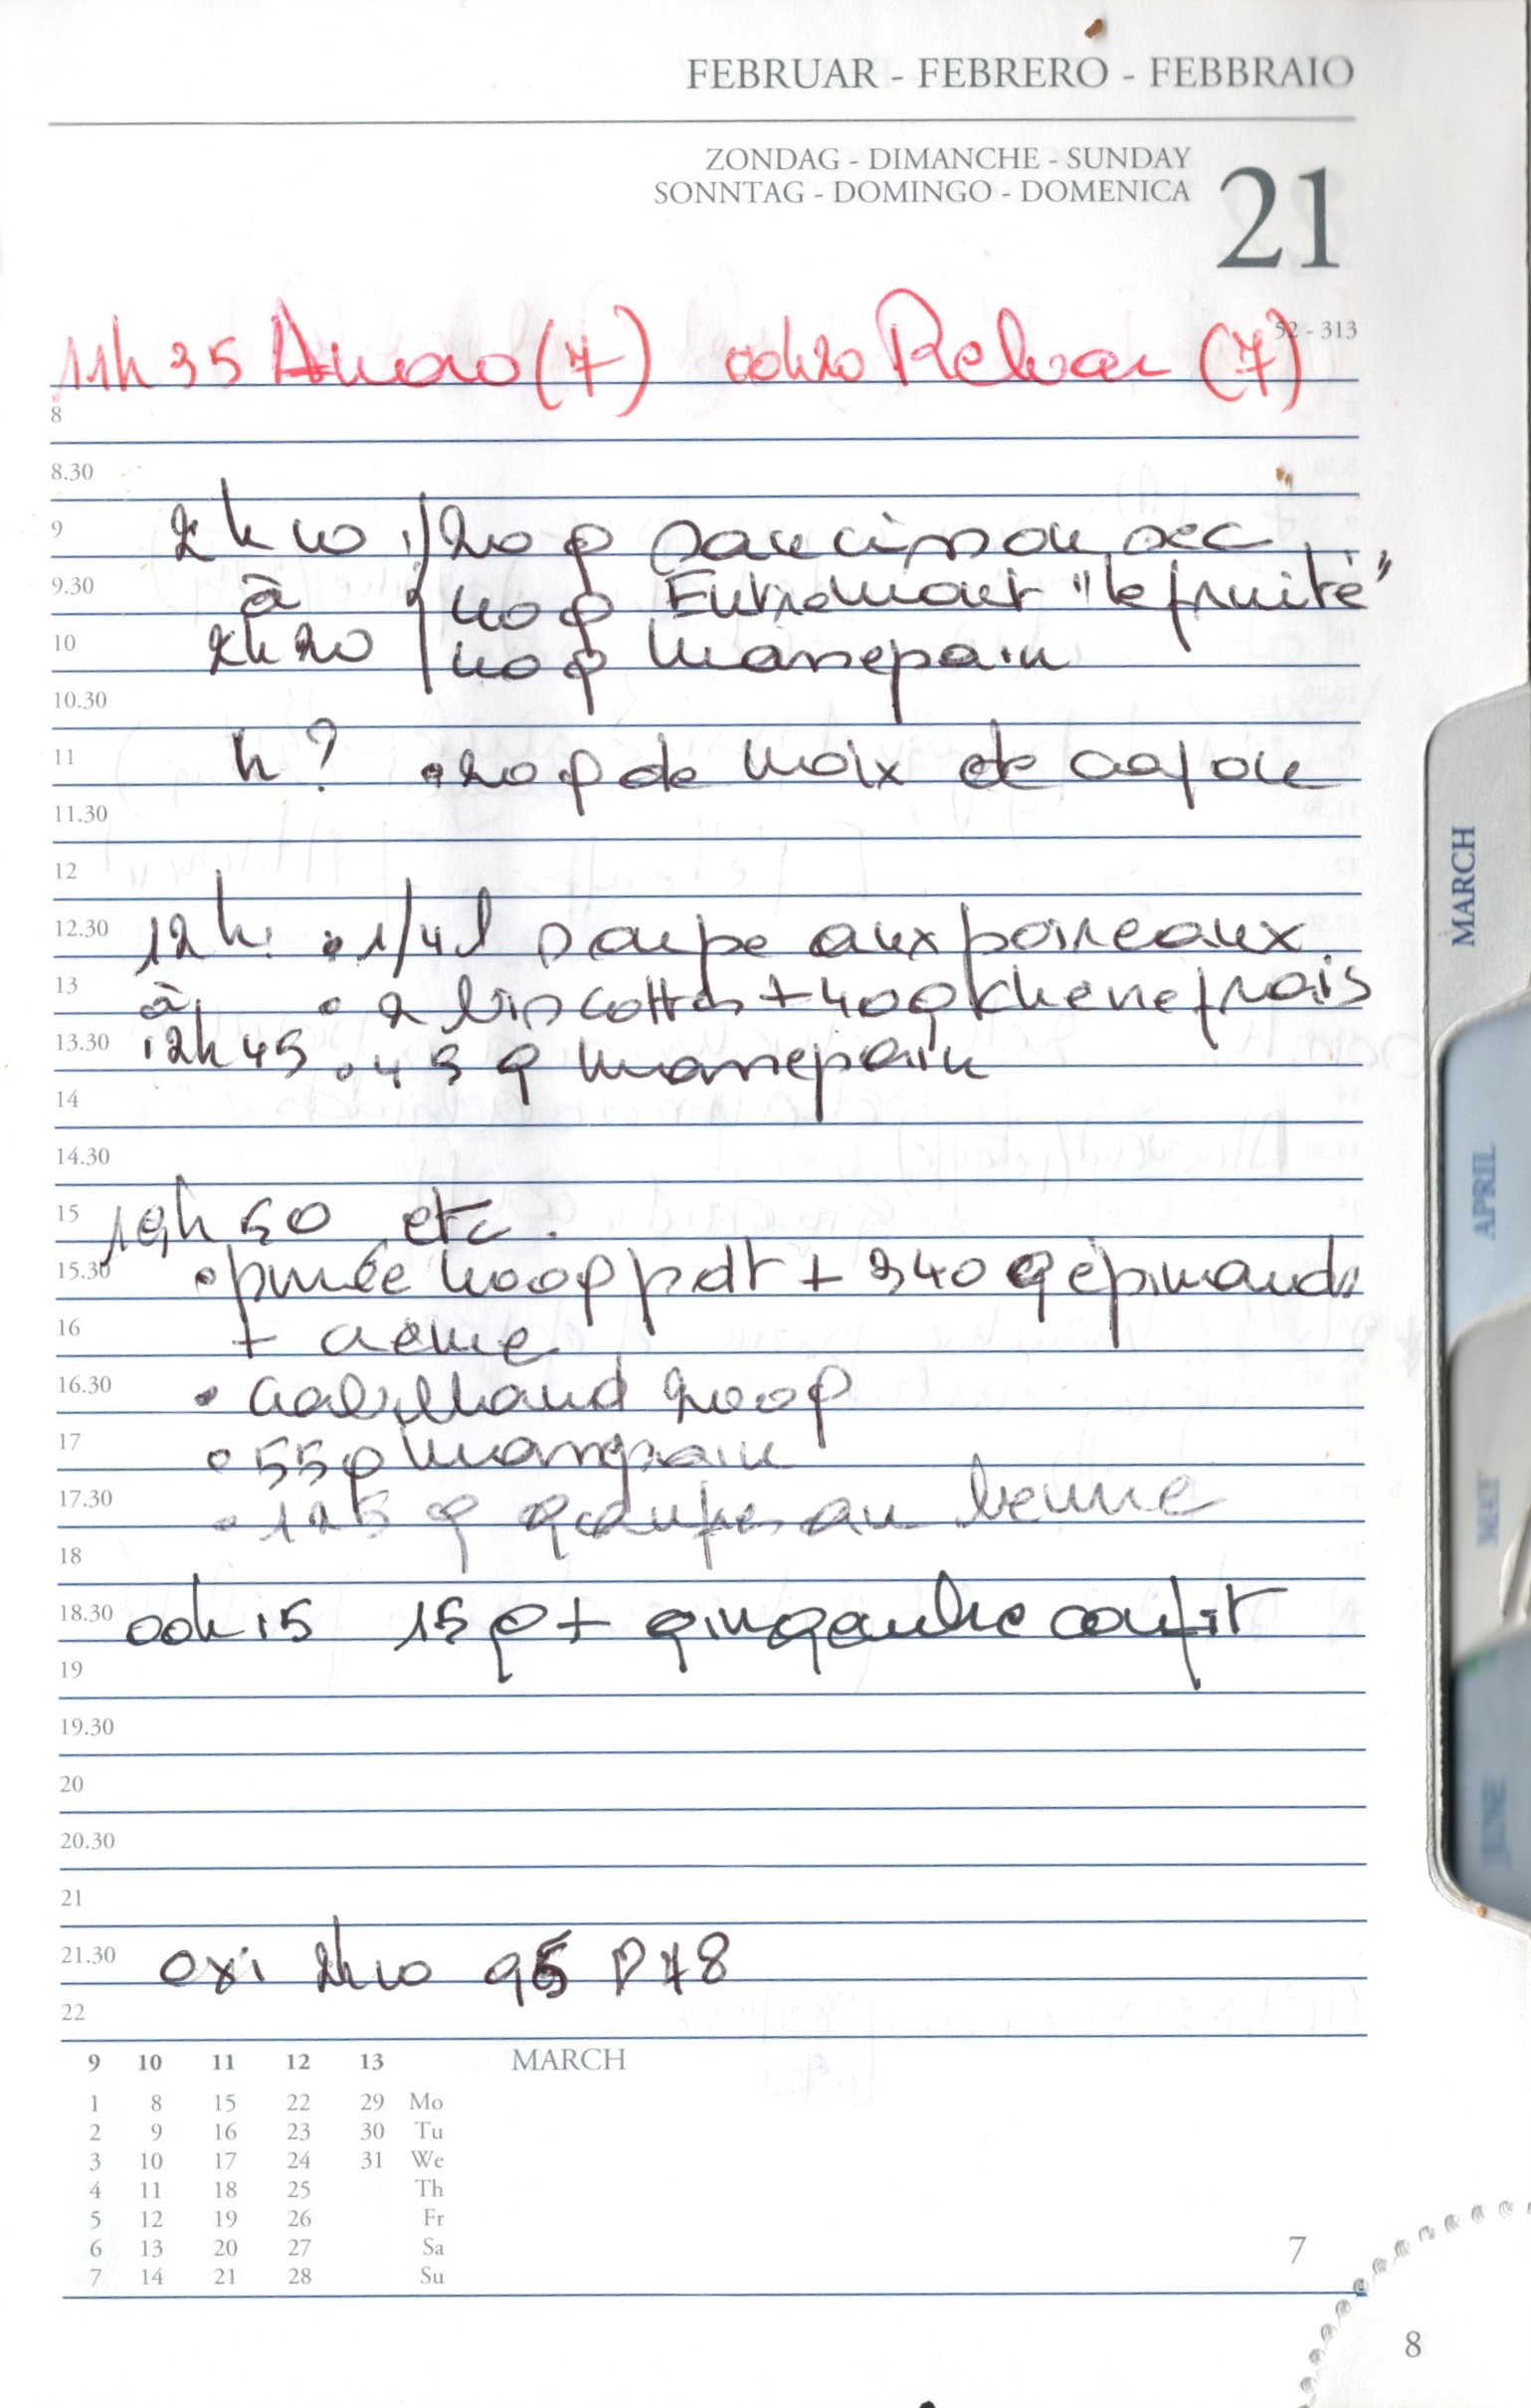 FEBRUAR - FEBRERO - FEBBRAIO
ZONDAG - DIMANCHE - SUNDAY
SONNTAG - DOMINGO - DOMENICA
21
52 - 313
11h35 (7) 00h20 (7)
8
8.30
9 2h10 20g saucisson sec
9.30 à 40g Entremont "le fruité"
10 2h20 40g massepain
10.30
11 h? 20g de noix de cajou
11.30
12
12.30 12h 1/4l soupe aux poireaux
13 à 2 biscottes + 40g chèvre frais
13.30 12h45 45g massepain
14
14.30
15 19h50 etc.
15.30 purée 400g pdt + 340g épinards
16 + crème
16.30 cabillaud 200g
17 55g massepain
17.30 125g gaufres au beurre
18
18.30 00h15 15g+ gingembre confit
19
19.30
20
20.30
21
21.30 oxi 2h10 95 P78
22
9 10 11 12 13 MARCH
1 8 15 22 29 Mo
2 9 16 23 30 Tu
3 10 17 24 31 We
4 11 18 25 Th
5 12 19 26 Fr
6 13 20 27 Sa
7 14 21 28 Su
7
8
MARCH
APRIL
MAY
JUNE